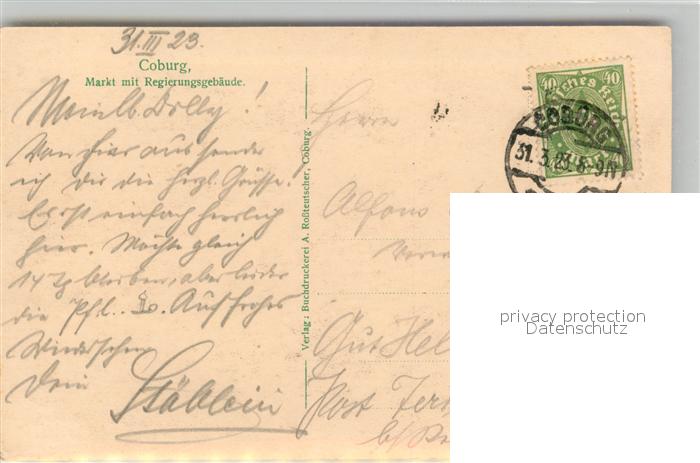 31.III 23.
Coburg,
Markt mit Regierungsgebäude.
Mein lb. Dolly!
Von hier aus sende
ich Dir die herzl. Grüsse.
Es ist einfach herrlich
hier. Möchte gleich
14 Tg bleiben, aber leider
die Pfl.. Auf frohes
Wiedersehen
Dein
Stäblein
Verlag: Buchdruckerei A. Roßteutscher, Coburg.
Herrn
Alfons
Gut
Post
40 40
Deutsches Reich
COBURG
31.3.23.8-9N
privacy protection
Datenschutz